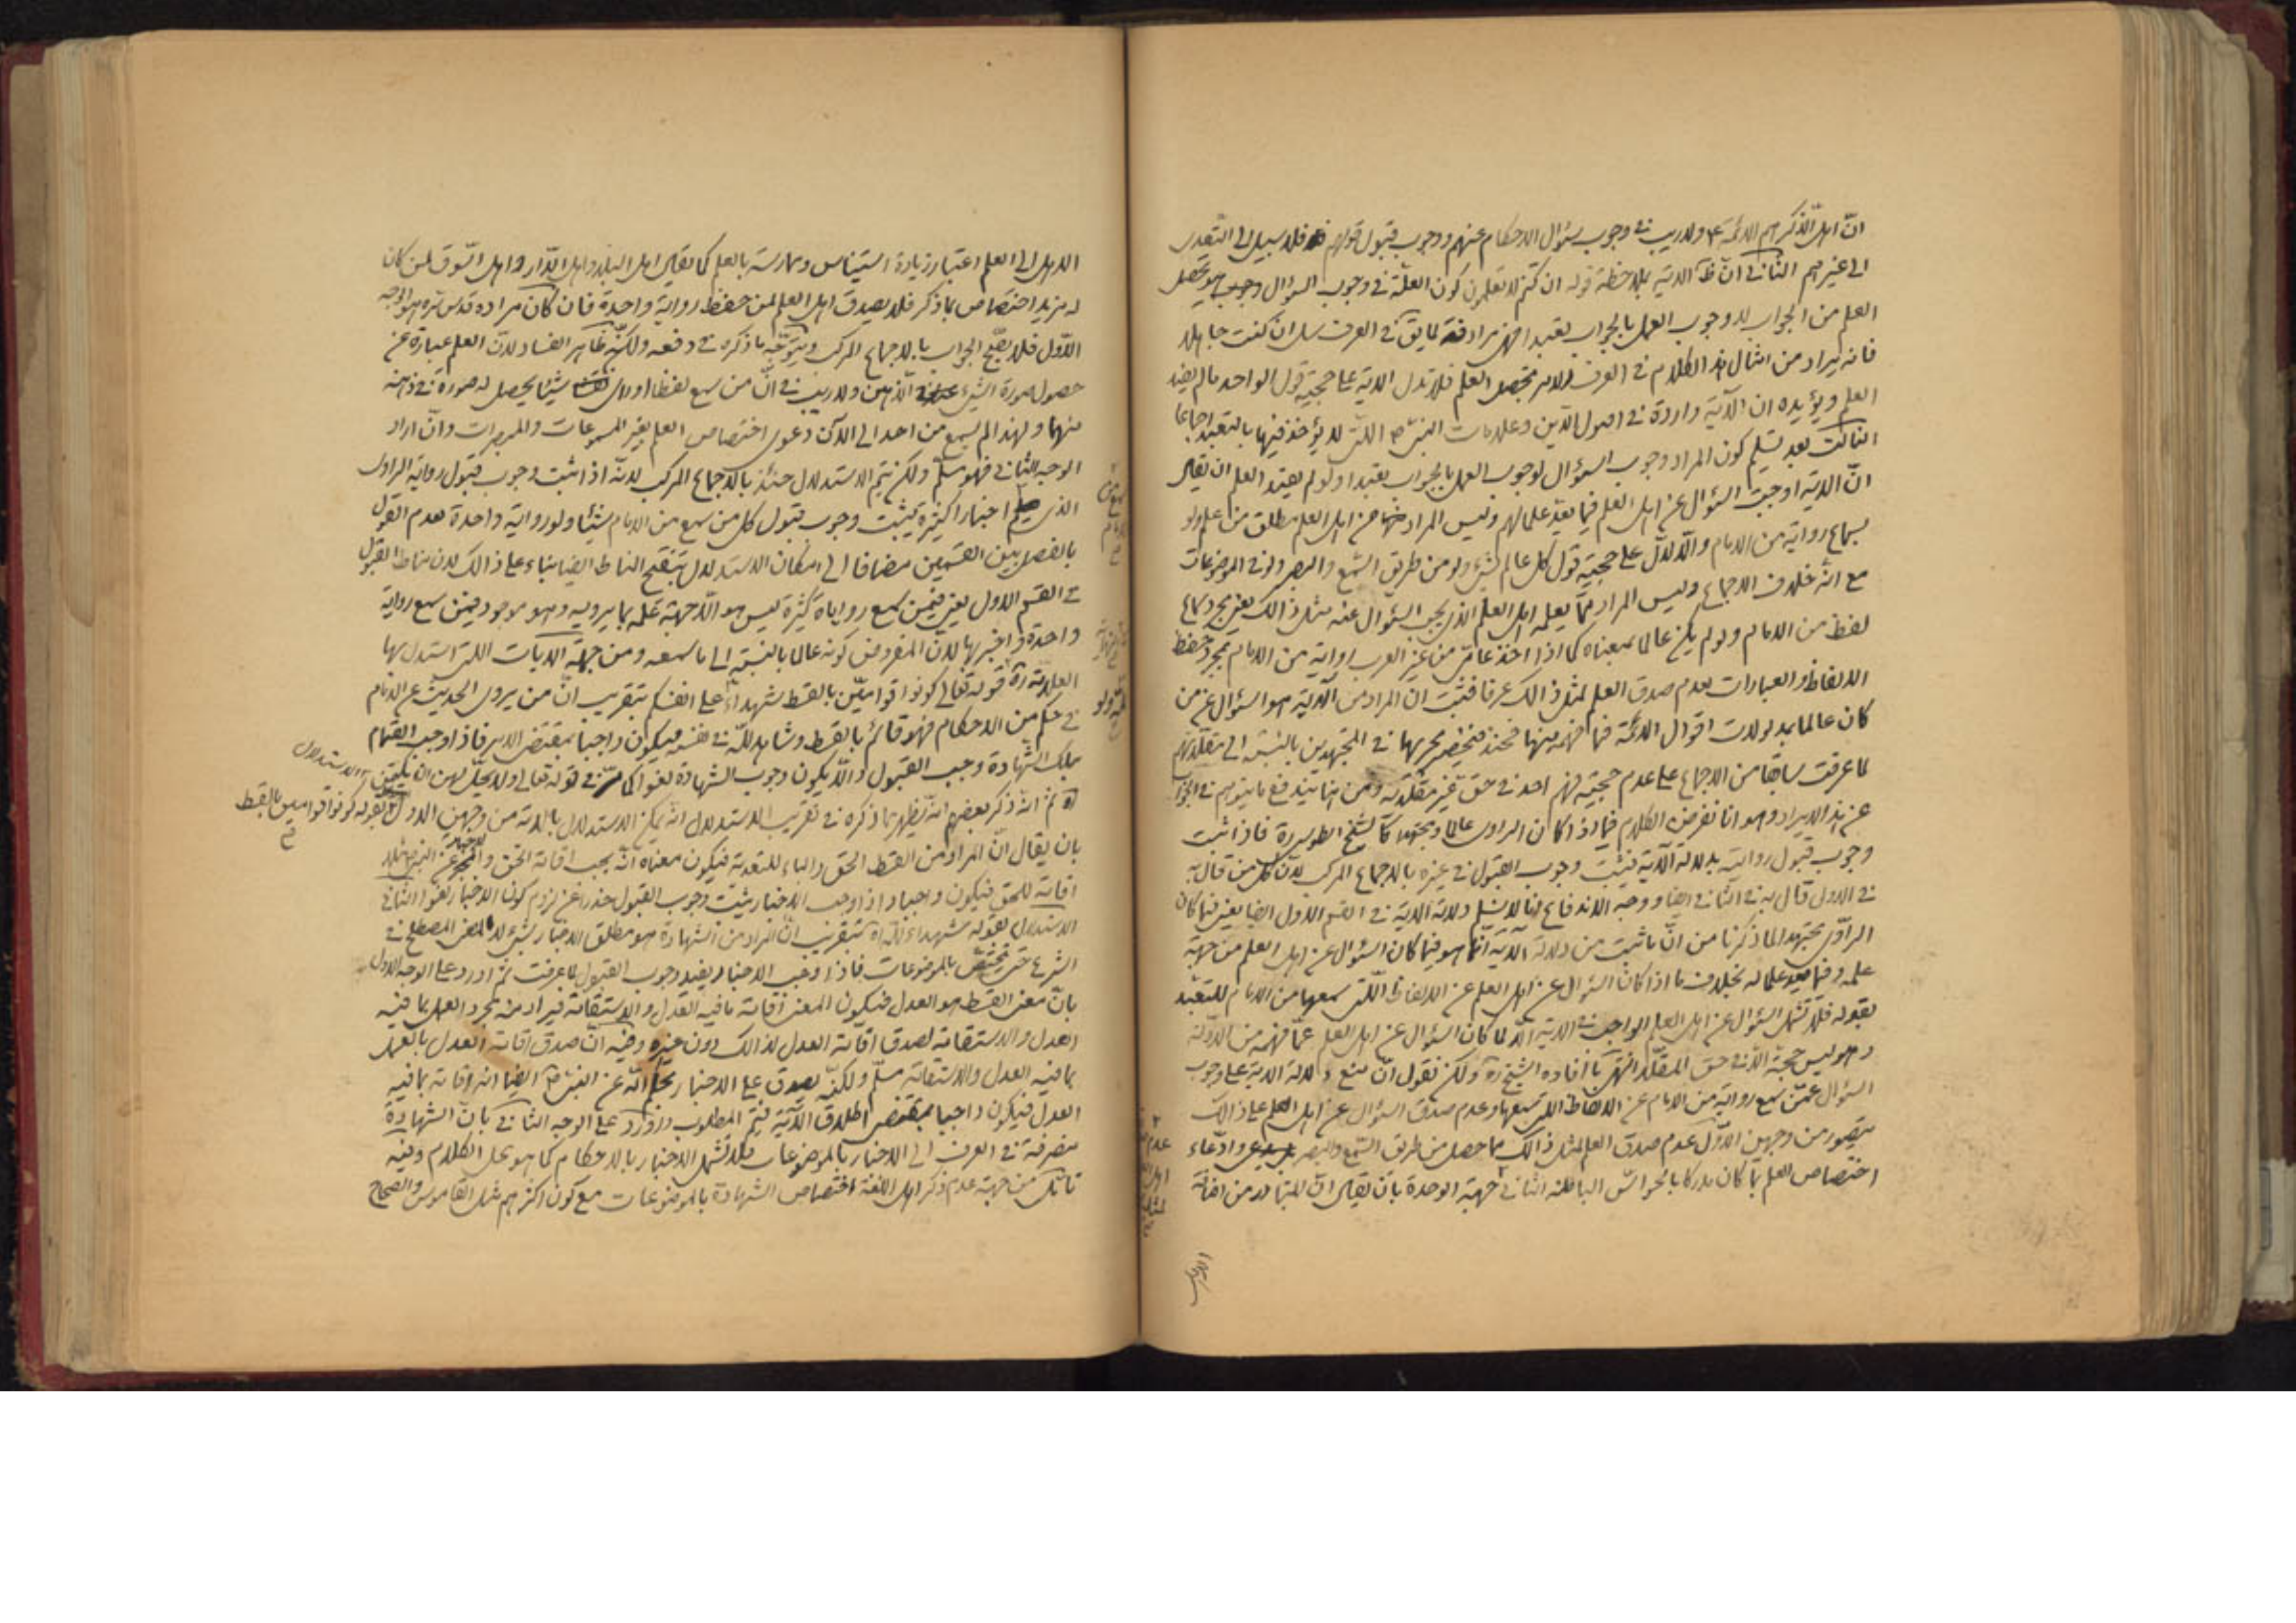 انّ اهل الذّكر هم الائمّة ع ولا ريب فى وجوب سؤال الاحكام عنهم ووجوب قبول قولهم فلا سبيل الى التعدى
الى غيرهم الثانى انّ ظ الآية بملاحظة قوله ان كنتم لا تعلمون كون العلّة فى وجوب السؤال هو تحصل
العلم من الجواب لا وجوب العمل بالجواب تعبدا فهى مرادفة لما يق فى العرف سل ان كنت جاهلا
فانه يراد من امثال هذا الكلام فى العرف الامر بتحصيل العلم فلا تدل الاية على حجيّة قول الواحد ما لم يفد
العلم ويؤيده ان الآية واردة فى اصول الدّين وعلامات النبى ص التى لا يؤخذ فيها بالتعبد اجماعا
الثالث بعد تسليم كون المراد وجوب السؤال لوجوب العمل بالجواب تعبدا ولو لم يفد العلم ان يقال
انّ الاية اوجبت السؤال عن اهل العلم فيما يعد علما لهم وليس المراد من اهل العلم مطلق من علم ولو
بسماع رواية من الامام والّا لدلّ على حجيّة قول كل عالم بشئ ولو من طريق السّمع والبصر ولو فى الموضوعات
مع انّه خلاف الاجماع وليس المراد ممّا يعلمه اهل العلم الذى يجب السؤال عنه مثل ذالك يعنى مجرد سماع
لفظ من الامام ولو لم يكن عالما بمعناه كما اذا اخذ عامّى من غير العرب رواية من الامام بمجرد حفظ
الالفاظ والعبارات بعدم صدق العلم لمثل ذالك عرفا فثبت ان المراد من الآية هو السؤال عن من
كان عالما بمدلولات اقوال الائمّة فيما فهمه منها فحينئذ فينحصر مجريها فى المجتهدين بالنسبة الى مقلّديهم
لما عرفت سابقا من الاجماع على عدم حجيّة فهم احد فى حق غير مقلّديه ومن هنا يندفع ما يتوهم فى الجواب
عن هذا الايراد وهو انا نفرض الكلام فيما اذا كان الراوى عالما ومجتهدا كالشيخ الطوسى ره فاذا ثبت
وجوب قبول روايته بدلالة الآية فيثبت وجوب القبول فى غيره بالاجماع المركب لانّ كل من قال به
فى الاول قال به فى الثانى ايضا ووجه الاندفاع انا لا نسلم دلالة الاية فى القسم الاول ايضا يعنى فيما كان
الراوى مجتهدا لما ذكرنا من انّ ما ثبت من دلالة الآية انّما هو فيما كان السؤال عن اهل العلم من جهة
علمه وفيما يعد علما له بخلاف ما اذا كان السؤال عن اهل العلم عن الالفاظ التى سمعها من الامام للتعبّد
بقوله فلا تشمل السؤال عن اهل العلم الواجب فى الاية الّا لما كان السؤال عن اهل العلم عمّا فهمه من الادلّة
وهو ليس حجّة الّا فى حق المقلّد انتهى كما افاده الشيخ ره ولكن نقول انّ منع دلالة الاية على وجوب
السؤال عمّن سمع رواية من الامام عن الالفاظ التى سمعها وعدم صدق السؤال عن اهل العلم على ذالك
يتصور من وجهين الاوّل عدم صدق العلم لمثل ذالك مما حصل من طريق السّمع والبصر وادّعاء
اختصاص العلم بما كان مدركا بالحواسّ الباطنة الثانى جهة الوحدة بان يقال انّ المتبادر من اضافة
الاهل
الاهل الى العلم اعتبار زيادة استيناس وممارسة بالعلم كما يقال اهل البلد واهل الدّار واهل السّوق لمن كان
له مزيد اختصاص بما ذكر فلا يصدق اهل العلم لمن حفظ رواية واحدة فان كان مراده قدس سره هو الوجه
الاوّل فلا يصحّ الجواب بالاجماع المركب ويتوجّه ما ذكره فى دفعه ولكنّه ظاهر الفساد لانّ العلم عبارة عن
حصول صورة الشئ فى الذهن ولا ريب فى انّ من سمع لفظا او راى شيئا يحصل له صورة فى ذهنه
منهما ولهذا لم يسمع من احد الى الآن دعوى اختصاص العلم بغير المسموعات والمبصرات وان اراد
الوجه الثانى فهو مسلّم ولكن يتم الاستدلال حينئذ بالاجماع المركب لانّه اذا ثبت وجوب قبول رواية الراوى
الذى اخبارا كثيرة يثبت وجوب قبول كل من سمع من الامام شيئا ولو رواية واحدة لعدم القول
بالفصل بين القسمين مضافا الى امكان الاستدلال بتنقيح المناط ايضا بناء على ذالك لان مناط القبول
فى القسم الاول يعنى فيمن سمع رواياة كثيرة ليس هو الّا جهة علمه بما يرويه وهو موجود فيمن سمع رواية
واحدة واخبر بها لان المفروض كونه عالما بالنسبة الى ما سمعه ومن جملة الايات التى استدل بها
العلامة ره قوله تعالى كونوا قوامين بالقسط شهداء على انفسكم بتقريب انّ من يروى الحديث عن الامام
فى حكم من الاحكام فهو قائم بالقسط وشاهد للّه فى نفسه فيكون واجبا بمقتضى الامر فاذا وجب القيام
بتلك الشّهادة وجب القبول والّا يكون وجوب الشهادة لغوا كما مرّ فى قوله تعالى ولا يحلّ لهن ان يكتمن
اه ثمّ انّه ذكر بعضهم انّه يظهر مما ذكره فى تقريب الاستدلال انّه يمكن الاستدلال بالاية من وجهين الاول الاستدلال بقوله كونوا قوامين بالقسط
بان يقال انّ المراد من القسط الحق والباء للتعدية فيكون معناه انّه يجب اقامة الحق والاخبار عن النبى ص مثلا
اقامة للحق فيكون واجبا واذا وجب الاخبار يثبت وجوب القبول حذرا عن لزوم كون الاخبار لغوا الثانى
الاستدلال بقوله شهداء للّه اه بتقريب انّ المراد من الشهادة هو مطلق الاخبار بشئ لا المعنى المصطلح فى
الشرع حتى يختصّ بالموضوعات فاذا وجب الاخبار يفيد وجوب القبول لما عرفت ثمّ اورد على الوجه الاول
بانّ معنى القسط هو العدل فيكون المعنى اقامة ما فيه العدل والاستقامة فيراد منه مجرد العمل بما فيه
العدل والاستقامة لصدق اقامة العدل لذالك دون غيره وفيه انّ صدق اقامة العدل بالعمل
بما فيه العدل والاستقامة مسلّم ولكنّه يصدق على الاخبار عن النبى ص ايضا انه اقامة بما فيه
العدل فيكون واجبا بمقتضى اطلاق الآية فيتم المطلوب واورد على الوجه الثانى بان الشهادة
منصرفة فى العرف الى الاخبار بالموضوعات فلا تشمل الاخبار بالاحكام كما هو محل الكلام وفيه
تامّل من جهة عدم ذكر اهل اللغة اختصاص الشهادة بالموضوعات مع كون اكثرهم مثل القاموس والصحاح